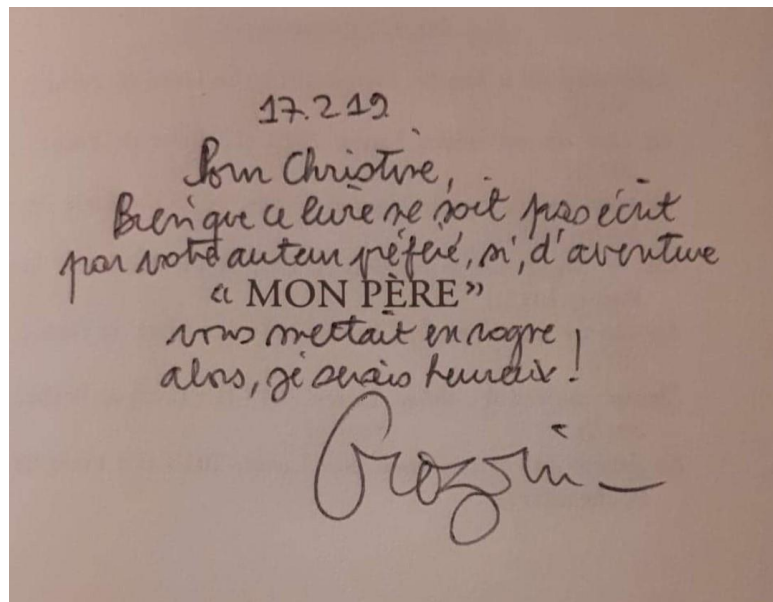 17.2.19
Pour Christine,
Bien que ce livre ne soit pas écrit
par votre auteur préféré, si, d'aventure
« MON PÈRE »
vous mettait en rogne,
alors, je serais heureux !